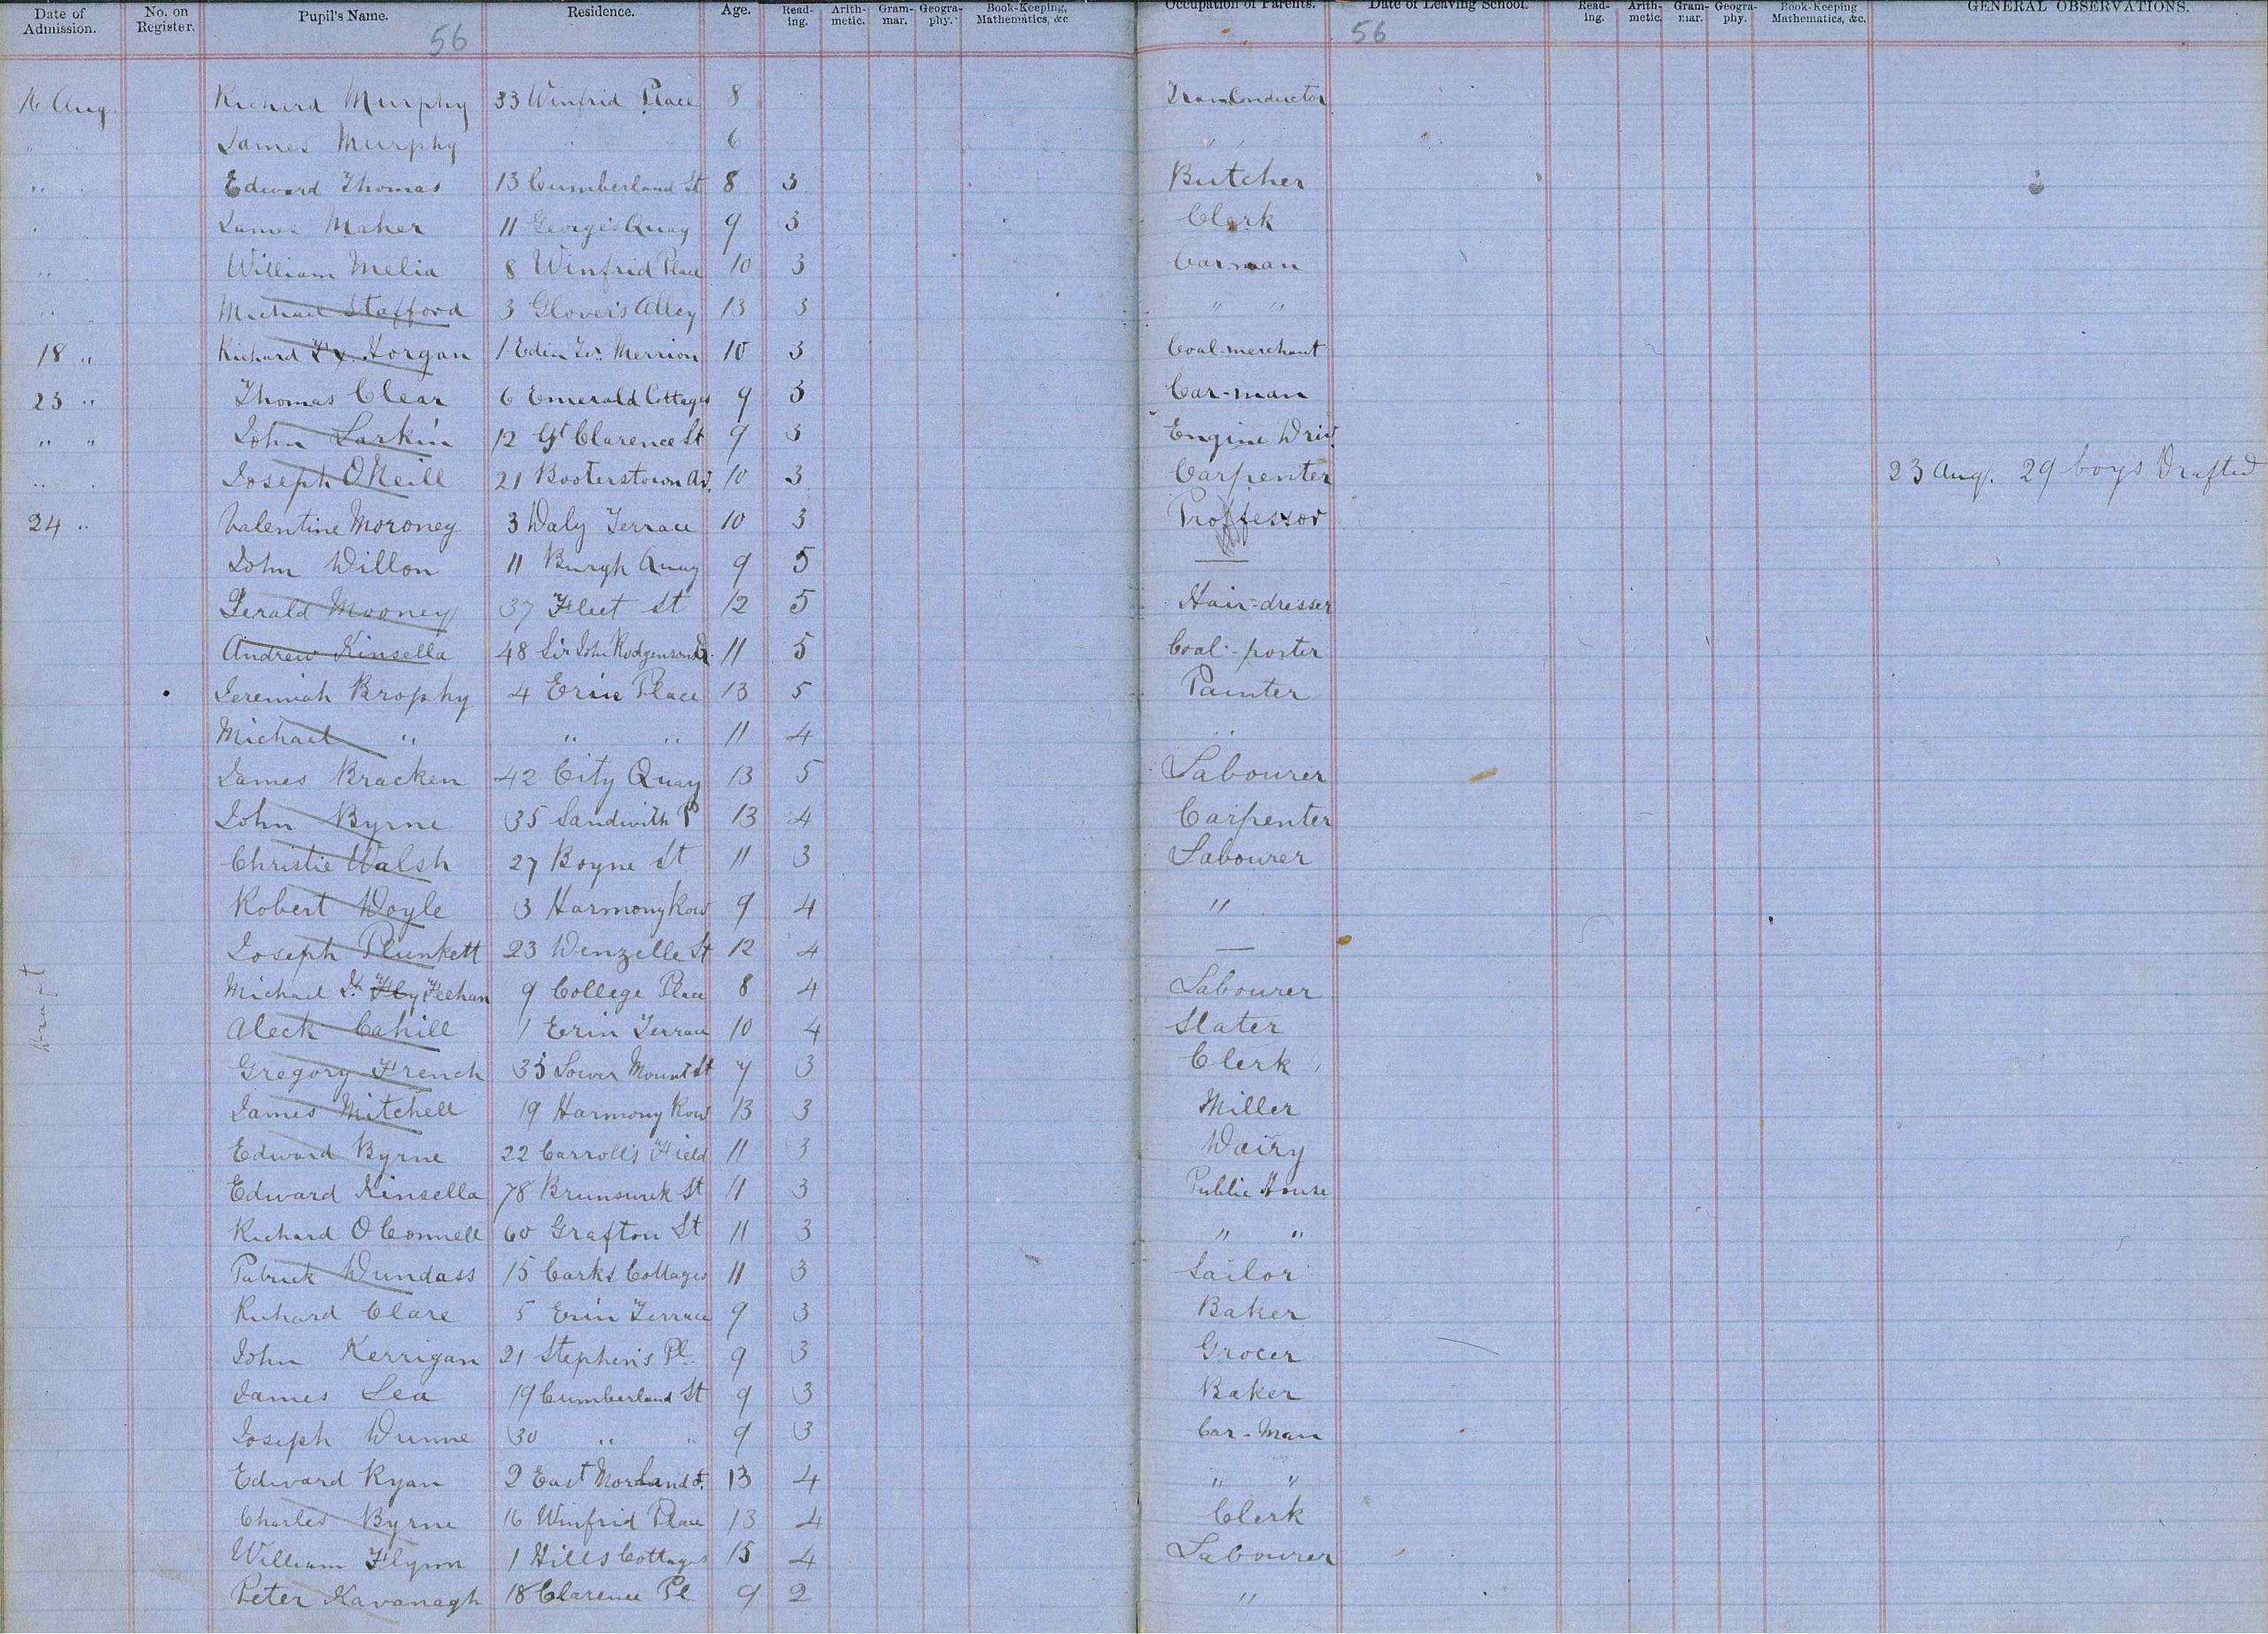 Date of Admission. No. on Register. Pupil's Name. Residence. Age. Read-ing. Arith-metic. Gram-mar. Geogra-phy. Book-Keeping, Mathematics, &c. Occupation of Parents. Date of Leaving School. Read-ing. Arith-metic. Gram-mar. Geogra-phy. Book-Keeping Mathematics, &c. GENERAL OBSERVATIONS.
56 56
16 Aug. Richard Murphy 33 Winfrid Place 8 Tram Conductor
" James Murphy 6 " "
" Edward Thomas 13 Cumberland St 8 3 Butcher
" James Maher 11 George's Quay 9 3 Clerk
" William Melia 8 Winfrid Place 10 3 Carman
" Michael Stafford 3 Glover's Alley 13 3 " "
18 " Richard Fx Horgan 1 Edin Ter. Merrion 10 3 Coal-merchant
23 " Thomas Clear 6 Emerald Cottages 9 3 Car-man
" " John Larkin 12 Gt Clarence St 9 3 Engine Driv.
" " Joseph O'Neill 21 Booterstown Av. 10 3 Carpenter 23 Aug. 29 boys Drafted
24 " Valentine Moroney 3 Daly Terrace 10 3 Proffessor
John Dillon 11 Burgh Quay 9 5 —
Gerald Mooney 37 Fleet St 12 5 Hair-dresser
Andrew Kinsella 48 Sir John Rodgersons Q. 11 5 Coal-porter
Jeremiah Brophy 4 Erin Place 13 5 Painter
Michael " " " 11 4 "
James Bracken 42 City Quay 13 5 Labourer
John Byrne 35 Sandwith P 13 4 Carpenter
Christie Walsh 27 Boyne St 11 3 Labourer
Robert Doyle 3 Harmony Row 9 4 "
Joseph Plunkett 23 Denzelle St 12 4 —
Michael Feehan 9 College Place 8 4 Labourer
Draft
Aleck Cahill 1 Erin Terrace 10 4 Slater
Gregory French 35 Lower Mount St 7 3 Clerk
James Mitchell 19 Harmony Row 13 3 Miller
Edward Byrne 22 Carroll's Field 11 3 Dairy
Edward Kinsella 78 Brunswick St 11 3 Public House
Richard O'Connell 60 Grafton St 11 3 " "
Patrick Dundass 15 Carks Cottages 11 3 Sailor
Richard Clare 5 Erin Terrace 9 3 Baker
John Kerrigan 21 Stephen's Pl. 9 3 Grocer
James Lea 19 Cumberland St 9 3 Baker
Joseph Dunne 30 " " 9 3 Car-Man
Edward Ryan 2 East Morland St. 13 4 " "
Charles Byrne 16 Winfrid Place 13 4 Clerk
William Flynn 1 Hills Cottages 15 4 Labourer
Peter Kavanagh 18 Clarence Pl 9 2 "